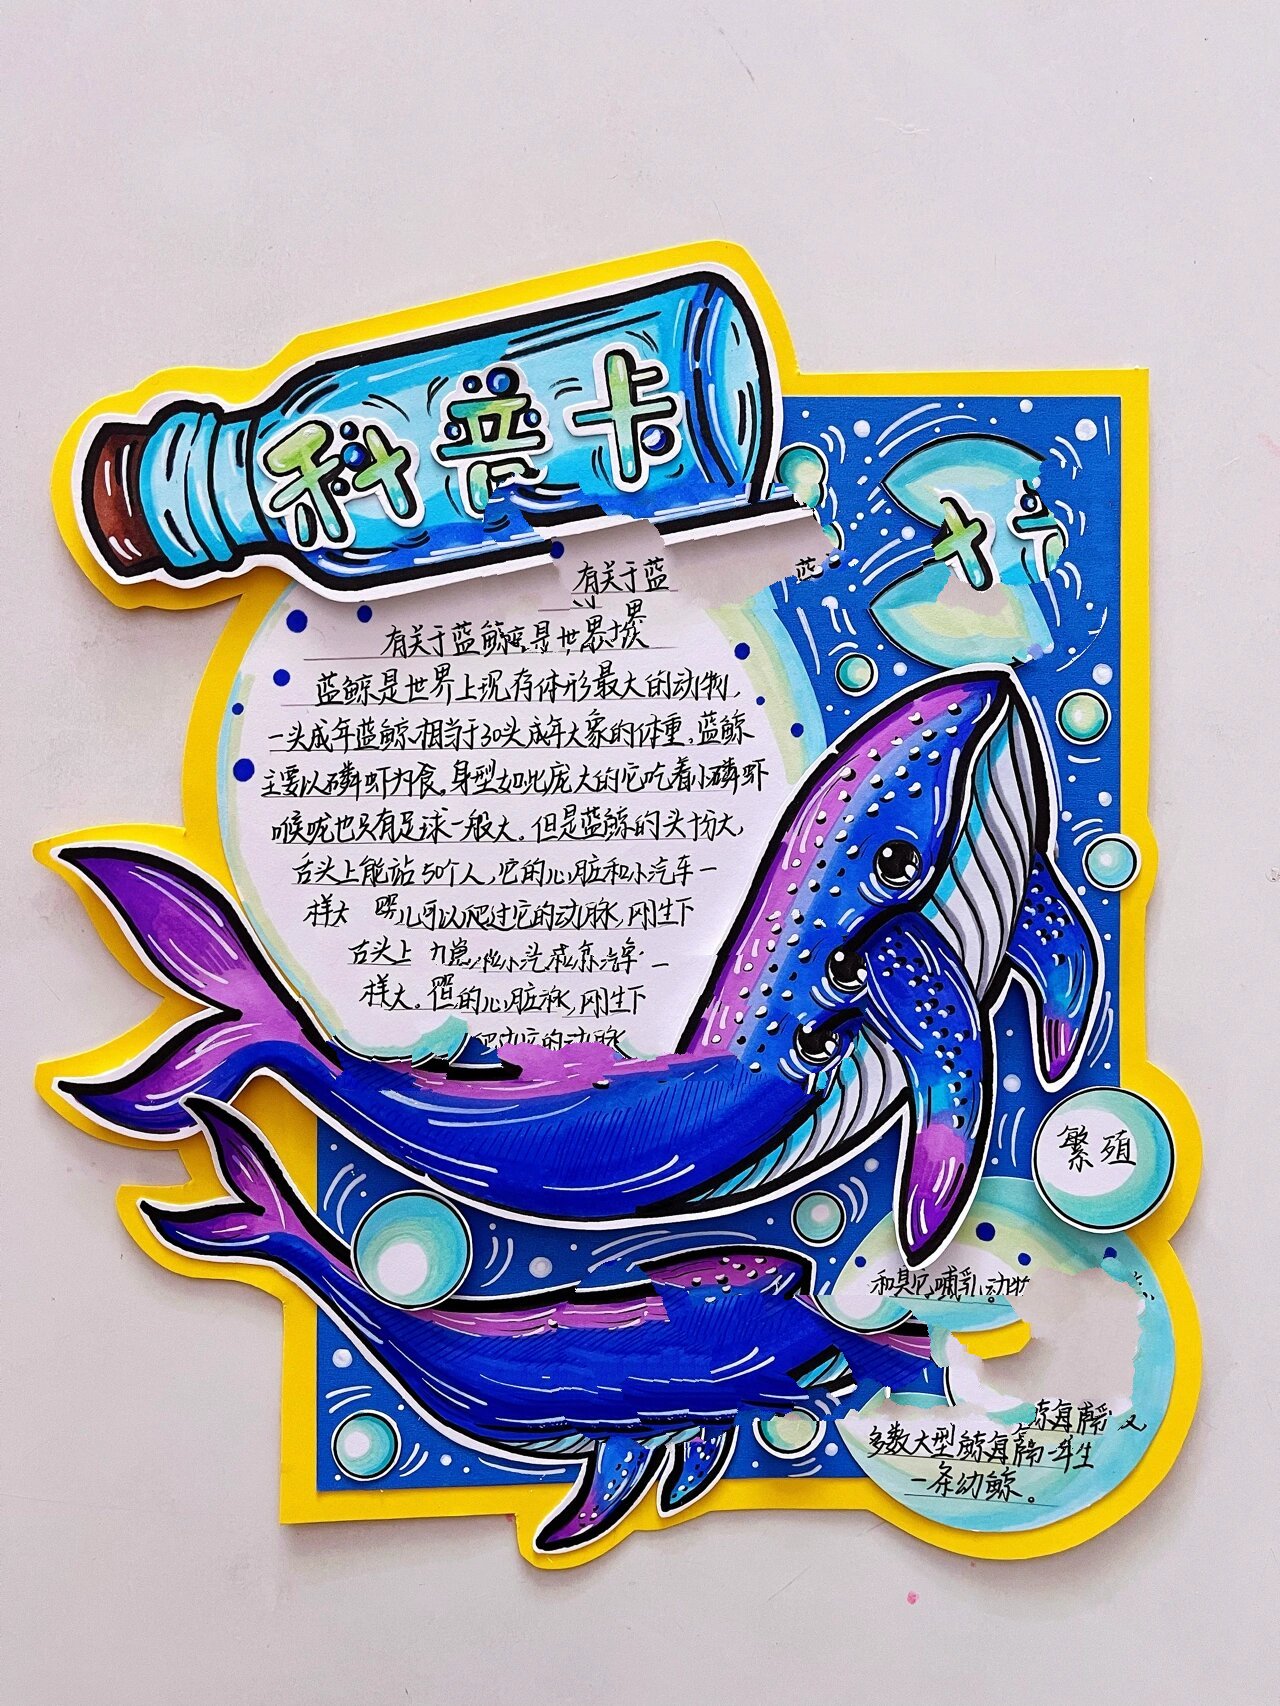 科普卡
有关于蓝
有关于蓝鲸是世界
蓝鲸是世界上现存体形最大的动物,
一头成年蓝鲸相当于30头成年大象的体重,蓝鲸
主要以磷虾为食。身型如此庞大的它吃着小磷虾
喉咙也只有足球一般大。但是蓝鲸的头极大,
舌头上能站50个人,它的心脏和小汽车一
样大 婴儿可以爬过它的动脉,刚生下
舌头上
样大。的心脏,刚生下
的动脉
繁殖
和其它哺乳动物
多数大型鲸每隔一年生
一条幼鲸。